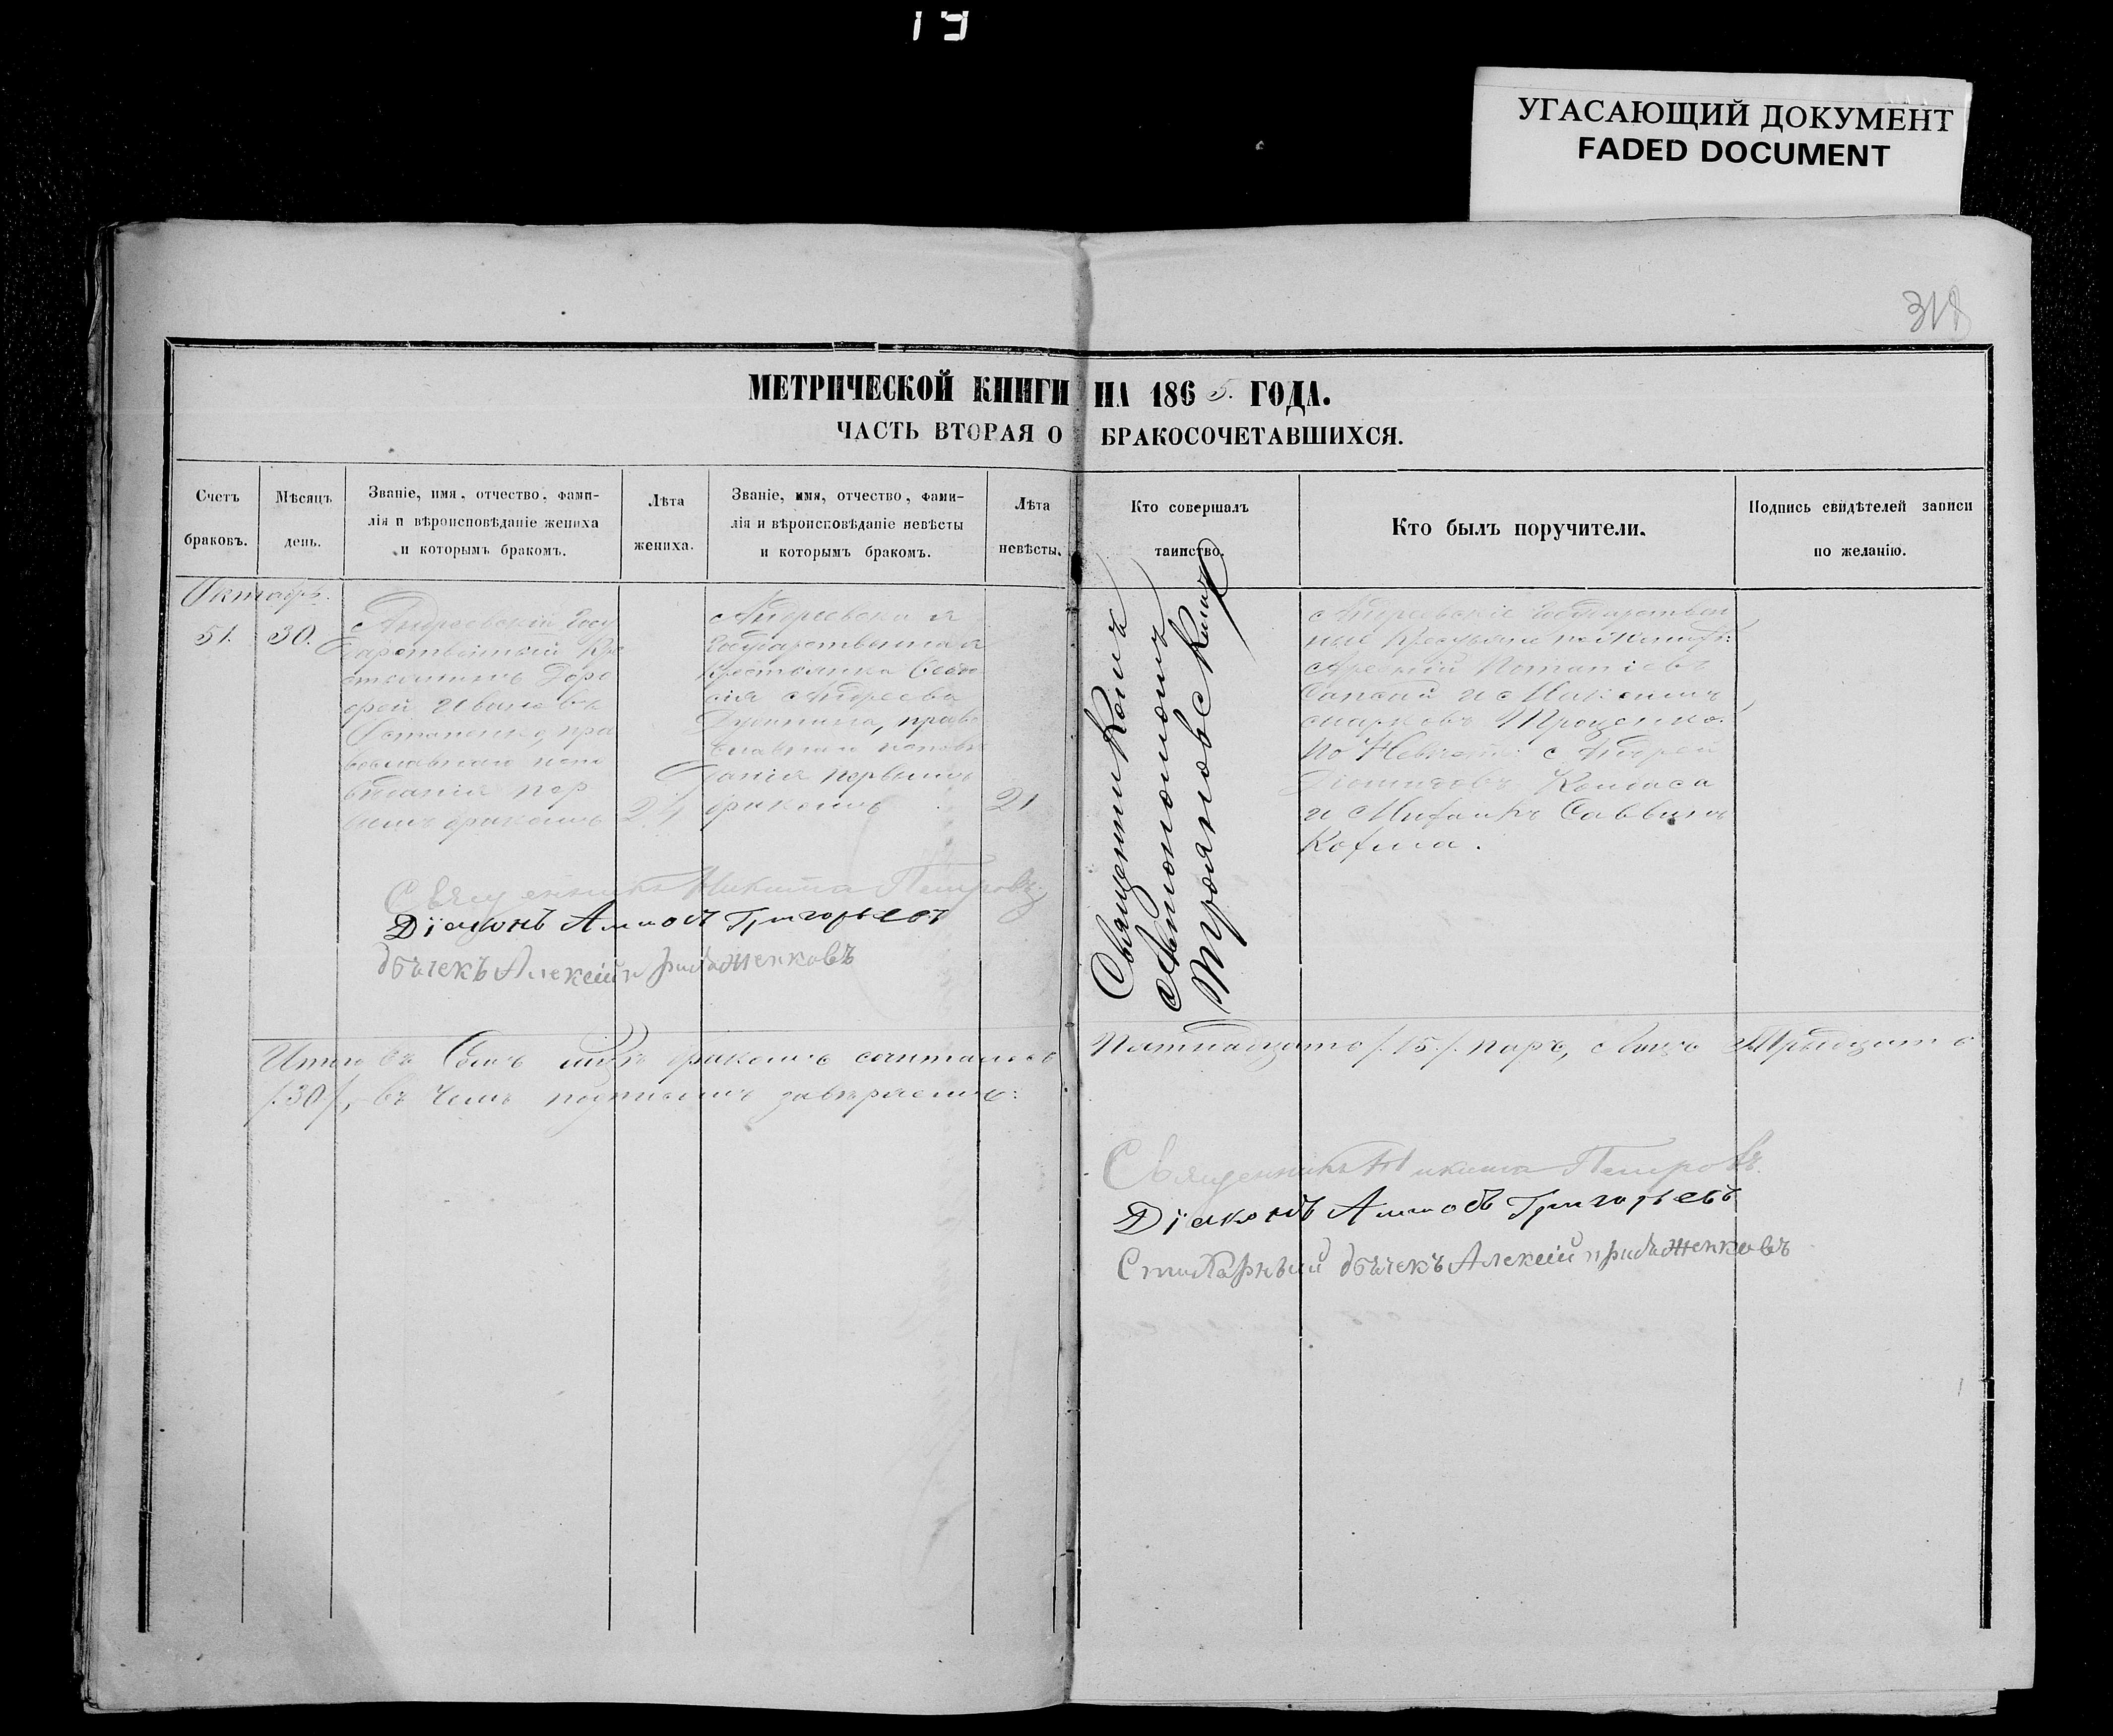 19
УГАСАЮЩИЙ ДОКУМЕНТ
FADED DOCUMENT
318
МЕТРИЧЕСКОЙ КНИГИ НА 1865. ГОДА.
ЧАСТЬ ВТОРАЯ О БРАКОСОЧЕТАВШИХСЯ.
Счетъ
браковъ.
Мѣсяцъ
день.
Званіе, имя, отчество, фами-
лія и вѣроисповѣданіе жениха
и которымъ бракомъ.
Лѣта
жениха.
Званіе, имя, отчество, фами-
лія и вѣроисповѣданіе невѣсты
и которымъ бракомъ.
Лѣта
невѣсты.
Кто совершалъ
таинство.
Кто былъ поручители.
Подпись свидѣтелей записи
по желанію.
Октябрь.
51.
30.
Андреевскій Госу
дарственный Кре
стьянинъ
Ивановъ
Остапенко, пра
вославнаго испо
вѣданія пер
вымъ бракомъ
24
Андреевская
Государственная
Крестьянка Ѳеодо
сія Андреева
право
славнаго исповѣ
данія первымъ
бракомъ
21
Священникъ
Трояновскій
Андреевскіе Государствен
ные Крестьяне по Женихѣ:
Потапіевъ
Сапсай и Максимъ
Марковъ Троценко.
По Невѣстѣ: Андрей
Кондаса
и Саввинъ
Священникъ Никита Петровъ
Діаконъ Амосъ Григорьевъ
дьячекъ Алексій
Итого въ бракомъ сочталось Пятнадцать /.15./. паръ, Лицъ Тридцать
/.30/, въ чемъ подписомъ завѣряемъ:
Священникъ Никита Петровъ.
Діаконъ Амосъ Григорьевъ
Стихарный дьячекъ Алексій